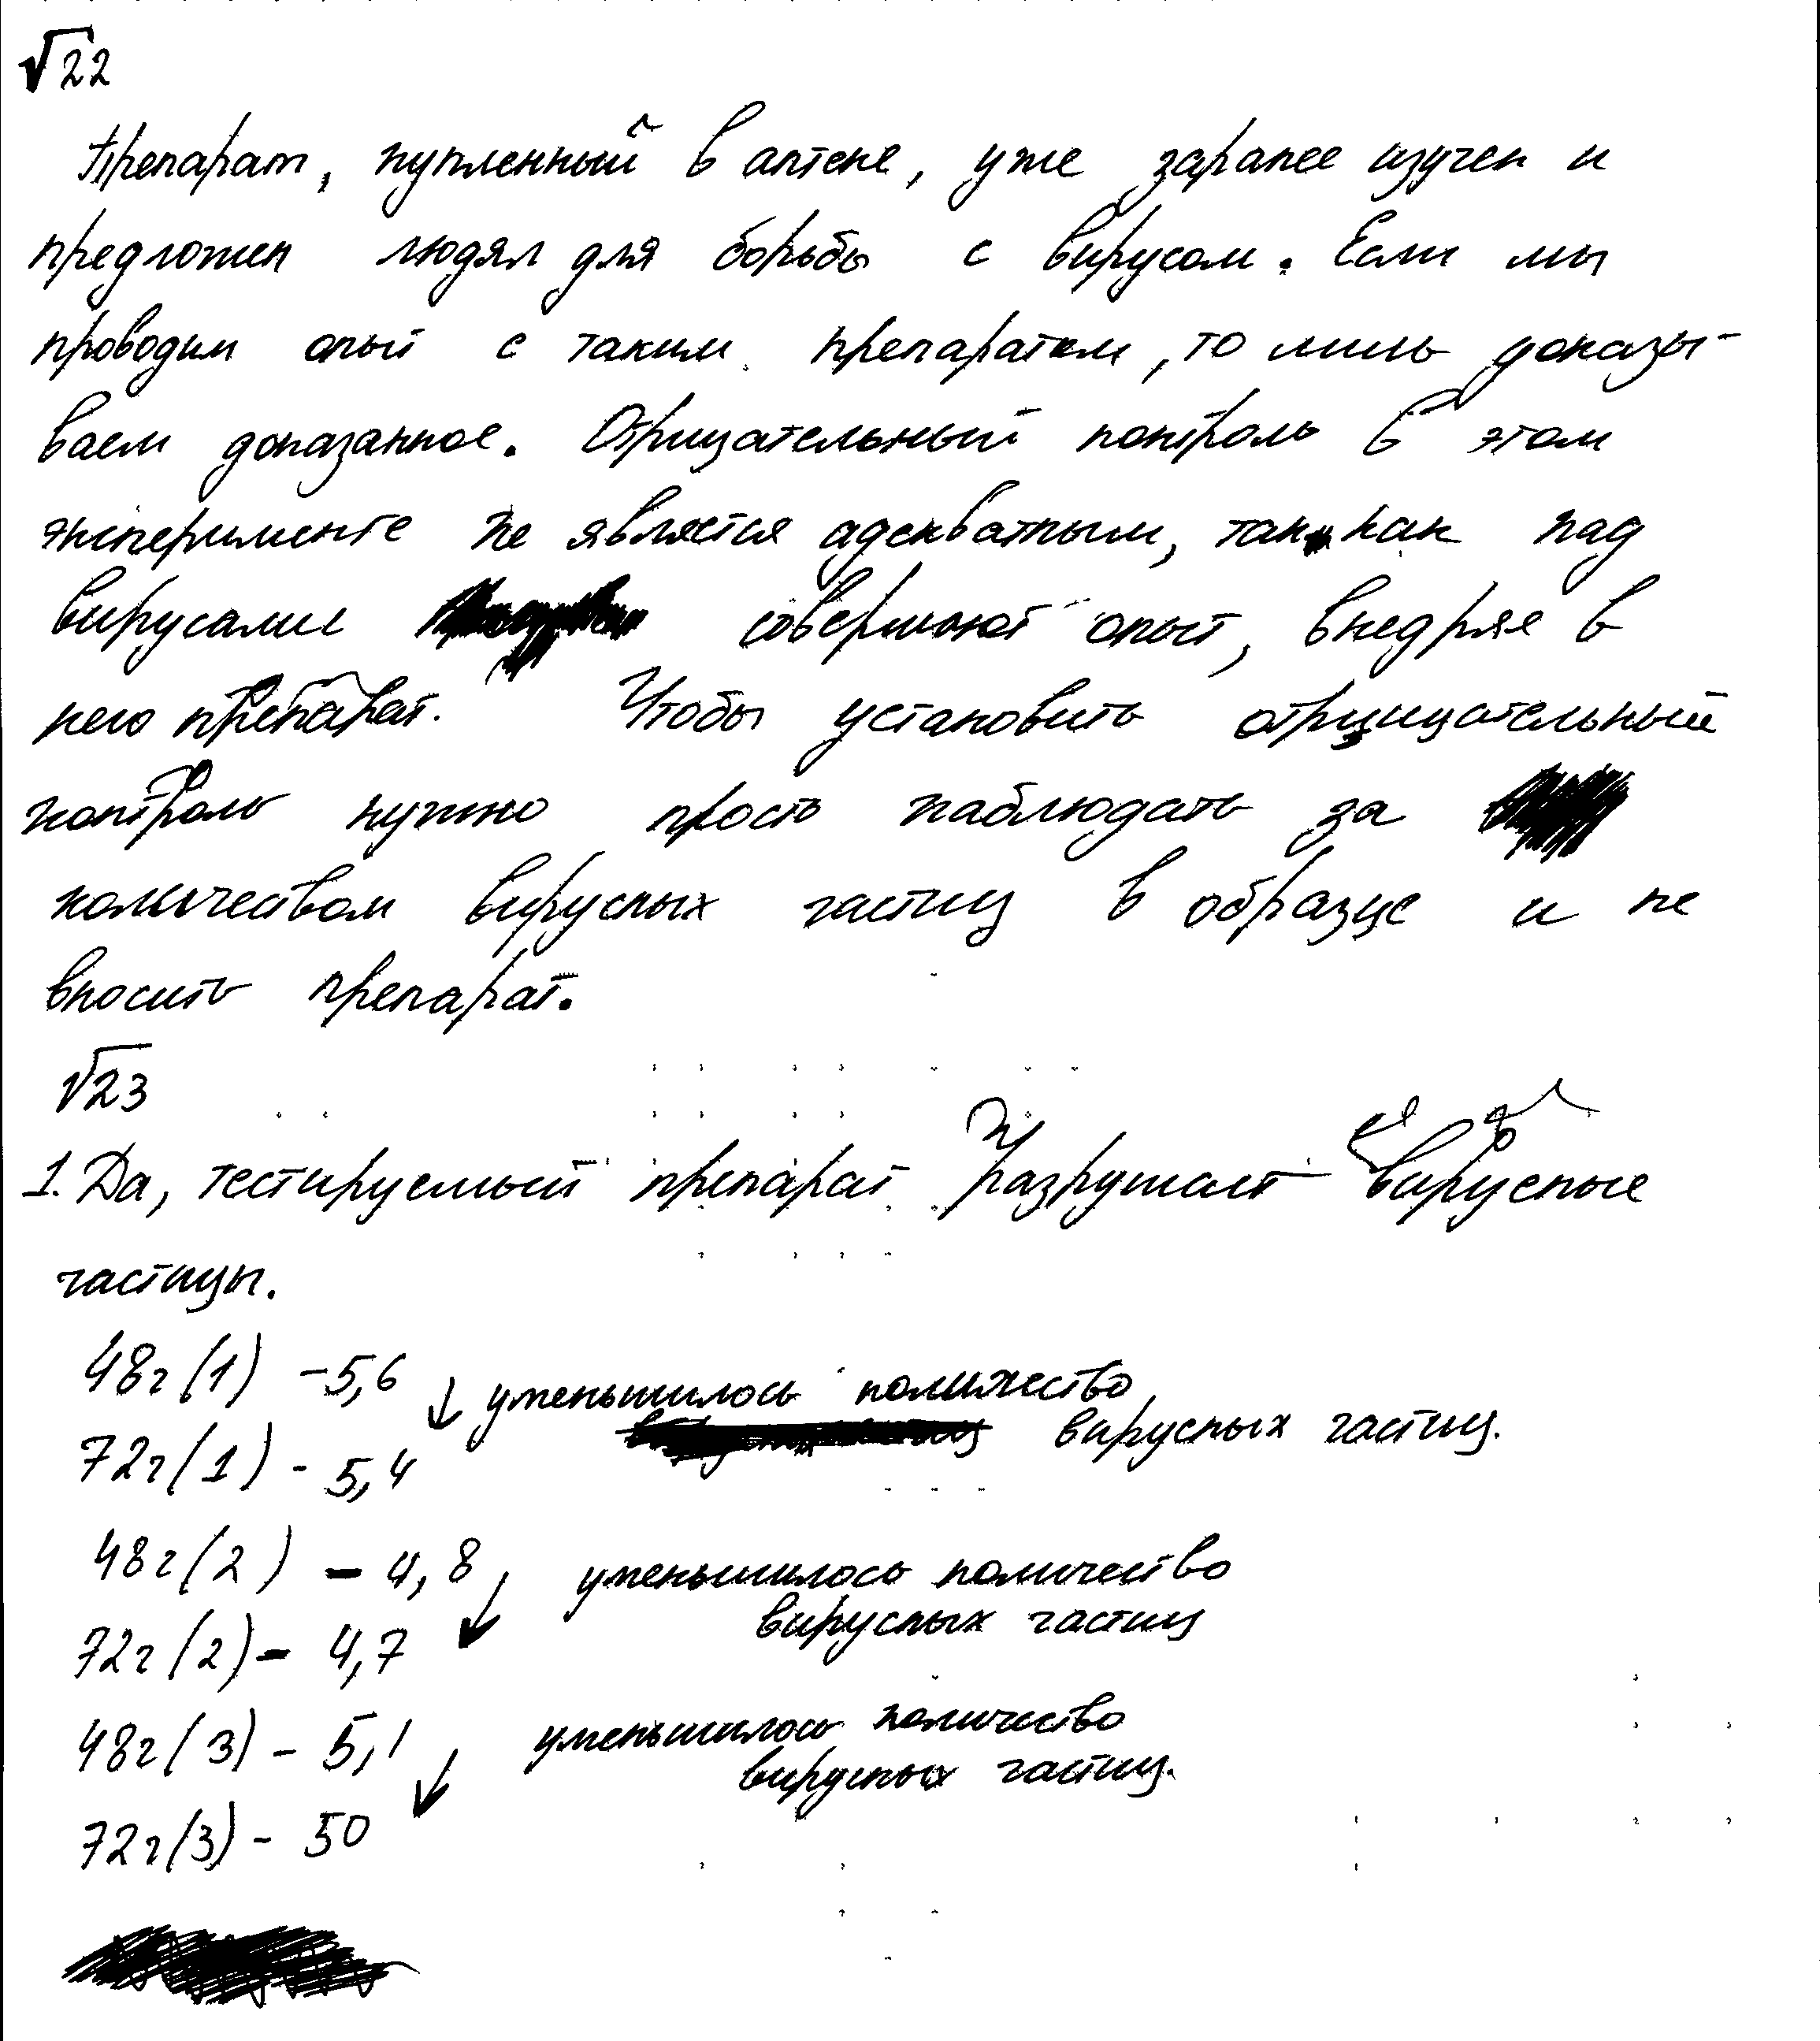 √22
Препарат, купленный в аптеке, уже заранее изучен и
предложен людям для борьбы с вирусом. Если мы
проводим опыт с таким препаратом, то лишь доказы-
ваем доказанное. Отрицательный контроль в этом
эксперименте не является адекватным, так как над
вирусами совершают опыт, внедряя в
него препарат. Чтобы установить отрицательный
контроль нужно просто наблюдать за
количеством вирусных частиц в образце и не
вносить препарат.
√23
1. Да, тестируемый препарат разрушает вирусные
частицы.
48ч(1) - 5,6 ↓ уменьшилось количество
вирусных частиц.
72ч(1) - 5,4
48ч(2) - 4,8 ↓ уменьшилось количество
вирусных частиц
72ч(2) - 4,7
48ч(3) - 5,1 ↓ уменьшилось количество
вирусных частиц.
72ч(3) - 50